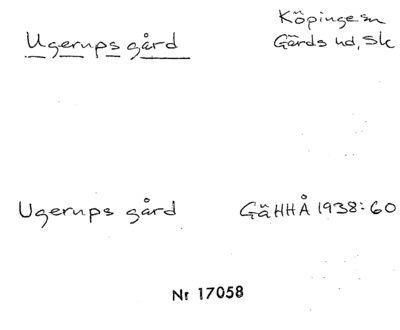 Köpinge sn
Ugerups gård Gärds hd, Sk
Ugerups gård GäHHÅ 1938:60
Nr 17058